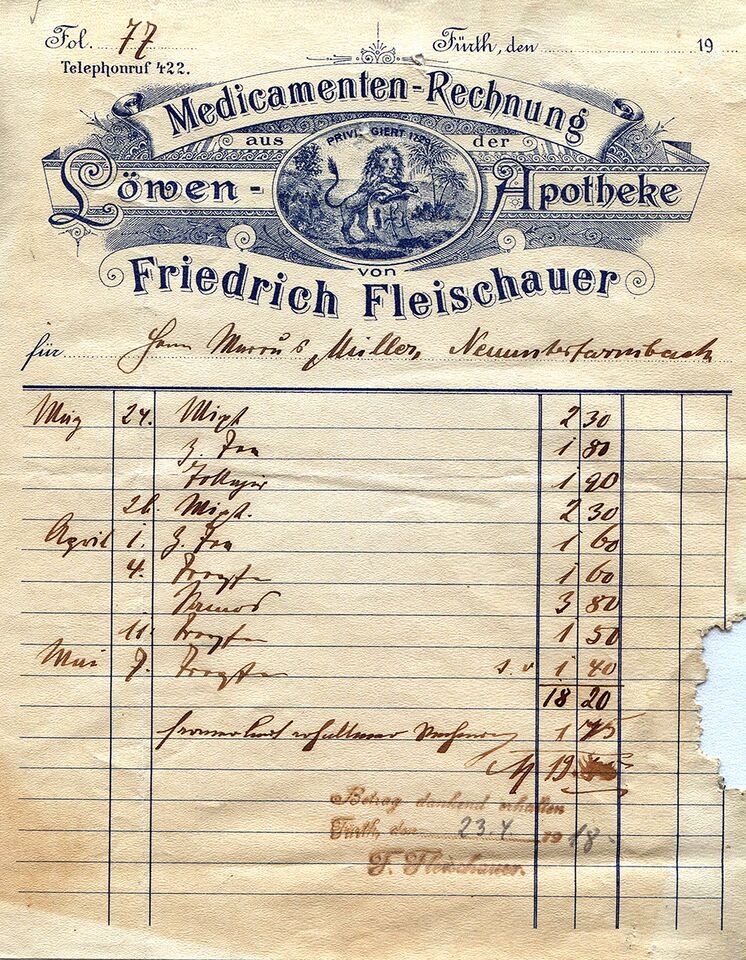 Fol. 77
Fürth, den 19
Telephonruf 422.
Medicamenten-Rechnung
aus der
PRIVILEGIERT
Löwen-Apotheke
von
Friedrich Fleischauer
für Herrn Marcus Müller, Neuunterfarrnbach
24. Mixt 2 30
1 80
1 90
26. Mixt. 2 30
April 1. 1 60
4. Tropfen 1 60
3 80
11. Tropfen 1 50
Mai 7. Tropfen s. v 1 40
18 20
erhaltener Rechnung 1 75
M 19
Betrag dankend erhalten
Fürth, den 23.7 1918.
F. Fleischauer.